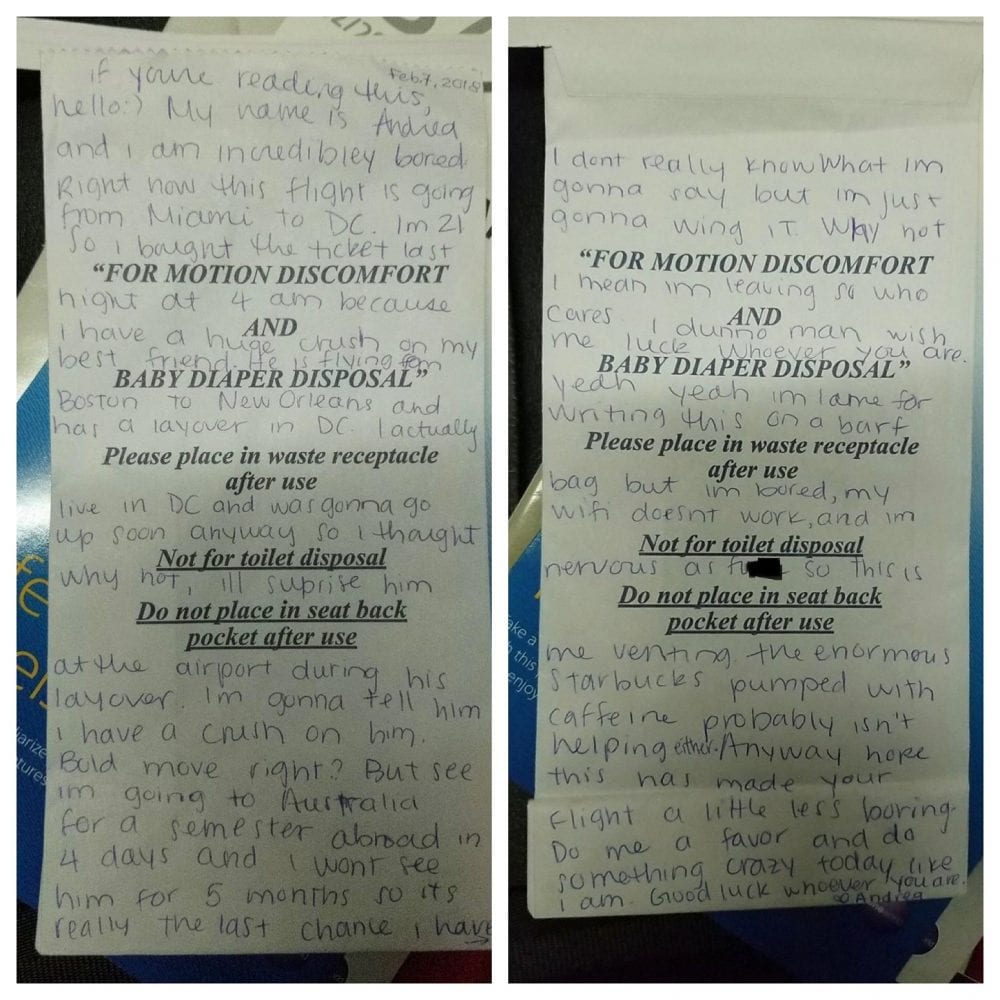 if youre reading this,
Feb.7, 2018
hello:) My name is Andrea
and i am incredibley bored
Right now this flight is going
from Miami to DC. Im 21
So i bought the ticket last
“FOR MOTION DISCOMFORT
night at 4 am because
AND
i have a huge crush on my
best friend. He is flying from
BABY DIAPER DISPOSAL”
Boston to New Orleans and
has a layover in DC. I actually
Please place in waste receptacle
after use
live in DC and was gonna go
up soon anyway so i thought
Not for toilet disposal
why not, ill suprise him
Do not place in seat back
pocket after use
at the airport during his
layover. Im gonna tell him
i have a crush on him.
Bold move right? But see
im going to Australia
for a semester abroad in
4 days and i wont see
him for 5 months so its
really the last chance i have
→
I dont really know what im
gonna say but im just
gonna wing it. Why not
“FOR MOTION DISCOMFORT
I mean im leaving so who
cares. I dunno man wish
AND
me luck whoever you are.
BABY DIAPER DISPOSAL”
yeah yeah im lame for
writing this on a barf
Please place in waste receptacle
after use
bag but im bored, my
wifi doesnt work, and im
Not for toilet disposal
nervous as so this is
Do not place in seat back
pocket after use
me venting. the enormous
Starbucks pumped with
caffeine probably isn't
helping either. Anyway hope
this has made your
flight a little less boring.
Do me a favor and do
something crazy today like
i am. Good luck whoever you are.
Andrea